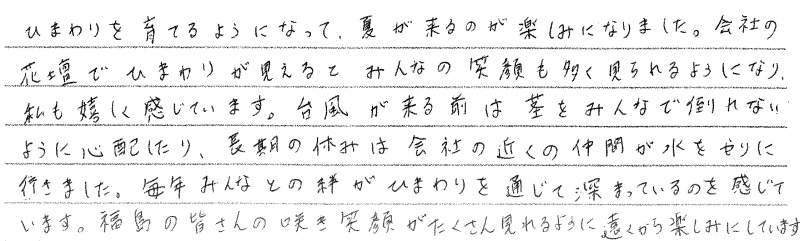 ひまわりを育てるようになって、夏が来るのが楽しみになりました。会社の
花壇でひまわりが見えるとみんなの笑顔も多く見られるようになり、
私も嬉しく感じています。台風が来る前は茎をみんなで倒れない
ように心配したり、長期の休みは会社の近くの仲間が水をやりに
行きました。毎年みんなとの絆がひまわりを通じて深まっているのを感じて
います。福島の皆さんの咲き笑顔がたくさん見れるように遠くから楽しみにしています